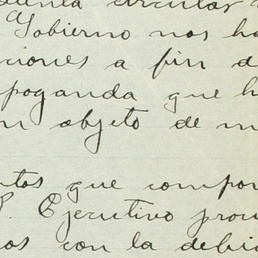 circular
Gobierno nos ha
ciones a fin d
poganda que h
n objeto de m
tos que compon
P. Ejecutivo prou
os con la debid